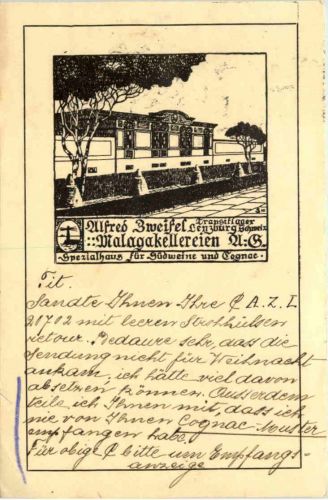 Alfred Zweifel Transitlager
Lenzburg Schweiz
::Malagakellereien A:G.
Spezialhaus für Südweine und Cognac.
Tit.
Sandte Ihnen Ihre C A. Z. L.
20702 mit leeren Strohhülsen
retour. Bedaure sehr, dass die
Sendung nicht für Weihnacht
ankam, ich hätte viel davon
absetzen können. Ausserdem
teile ich Ihnen mit, dass ich
nie von Ihnen Cognac-Muster
empfangen habe.
Für obige C bitte um Empfangs-
anzeige